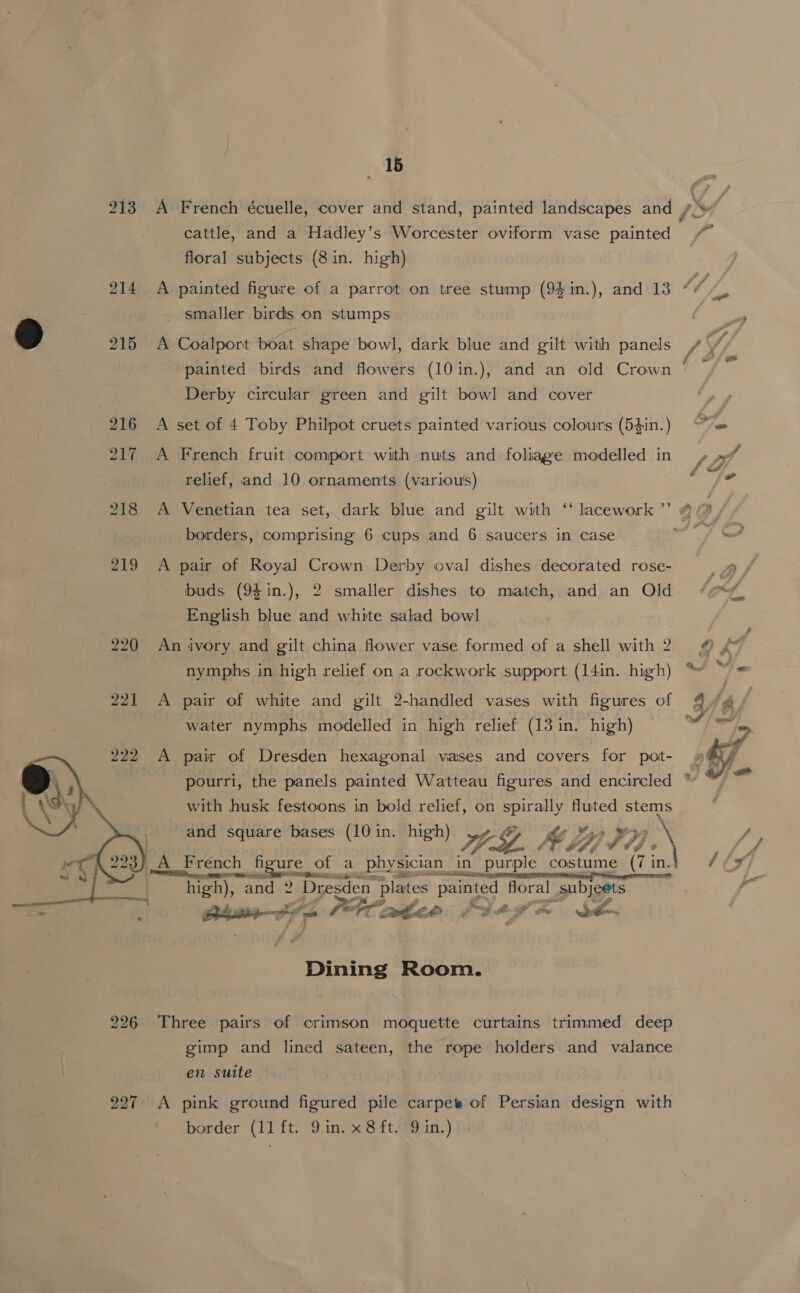 15
213 A French écuelle, cover and stand, painted landscapes and
cattle, and a Hadley's Worcester oviform vase painted
floral subjects (8 in. high)
214 A painted figure of a parrot on tree stump (9½ in.), and 13
smaller birds on stumps
215 A Coalport boat shape bowl, dark blue and gilt with panels
painted birds and flowers (10 in.), and an old Crown
Derby circular green and gilt bowl and cover
216 A set of 4 Toby Philpot cruets painted various colours (5½in.)
217 A French fruit comport with nuts and foliage modelled in
relief, and 10 ornaments (various)
218 A Venetian tea set, dark blue and gilt with “ lacework ”
borders, comprising 6 cups and 6 saucers in case
219 A pair of Royal Crown Derby oval dishes decorated rose-
buds (9½ in.), 2 smaller dishes to match, and an Old
English blue and white salad bowl
220 An ivory and gilt china flower vase formed of a shell with 2
nymphs in high relief on a rockwork support (14in. high)
221 A pair of white and gilt 2-handled vases with figures of
water nymphs modelled in high relief (13 in. high)
222 A pair of Dresden hexagonal vases and covers for pot-
pourri, the panels painted Watteau figures and encircled
with husk festoons in bold relief, on spirally fluted stems
and square bases (10 in. high)
223 A French figure of a physician in purple costume (7 in.
high), and 2 Dresden plates painted floral subjects
Dining Room.
226 Three pairs of crimson moquette curtains trimmed deep
gimp and lined sateen, the rope holders and valance
en suite
227 A pink ground figured pile carpet of Persian design with
border (11 ft. 9 in. x 8 ft. 9 in.)